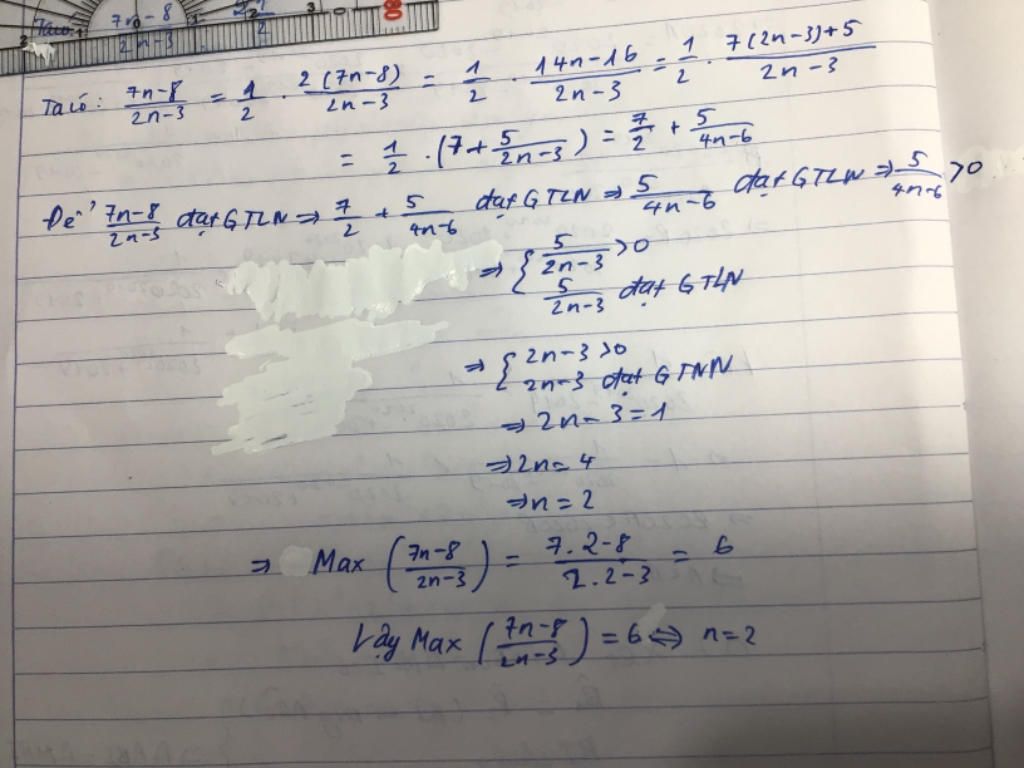 Ta có: 7n-8/2n-3 = 1/2 . 2(7n-8)/2n-3 = 1/2 . 14n-16/2n-3 = 1/2 . 7(2n-3)+5/2n-3
= 1/2 . (7+5/2n-3) = 7/2 + 5/4n-6
Để 7n-8/2n-3 đạt GTLN ⇒ 7/2 + 5/4n-6 đạt GTLN ⇒ 5/4n-6 đạt GTLN ⇒ 5/4n-6 >0
⇒ { 5/2n-3 >0
5/2n-3 đạt GTLN
⇒ { 2n-3 >0
2n-3 đạt GTNN
⇒ 2n-3=1
⇒ 2n=4
⇒ n=2
⇒ Max (7n-8/2n-3) = 7.2-8/2.2-3 = 6
Vậy Max (7n-8/2n-3) = 6 ⇔ n=2